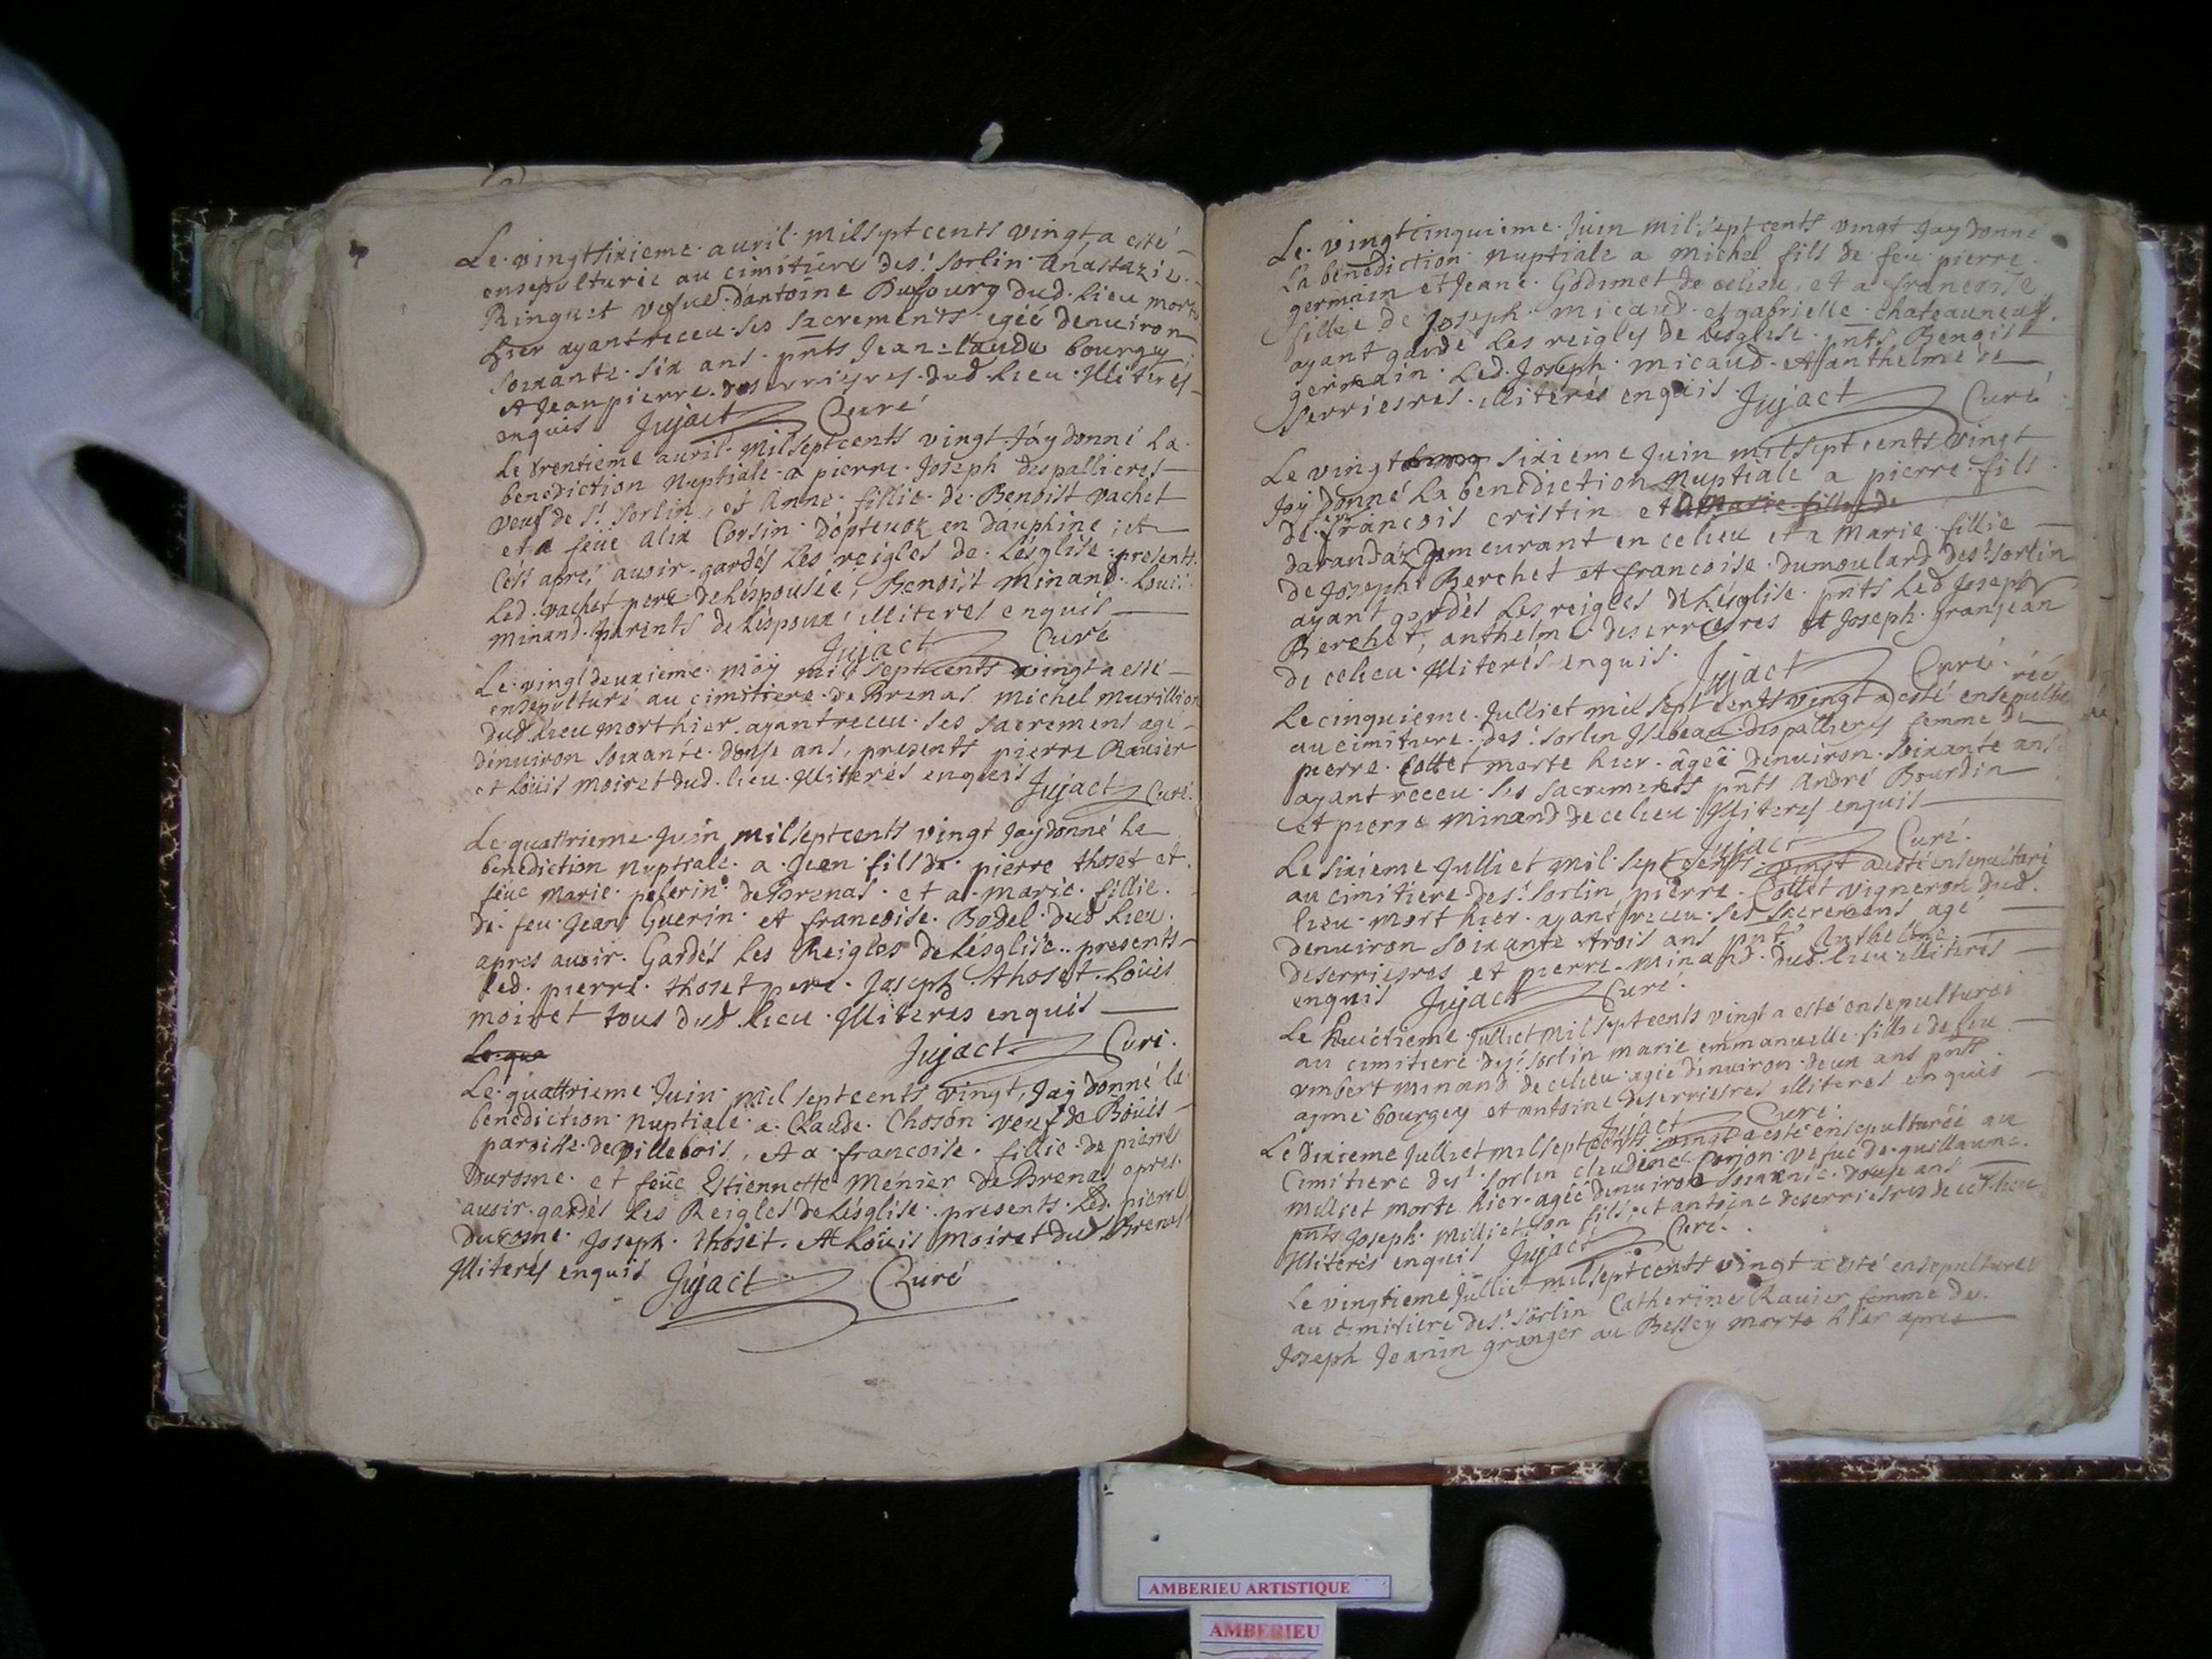 Le vingtsixieme auril milsept cents vingt a esté
ensepulturée au cimitiere des.t Sorlin Anastazie
Ringuet vefue d'antoine Dufourg dud. lieu morte
hier ayant receu ses sacrements egée denuiron
soixante six ans pnts Jean claude bourgey
et Jean pierre deserriesres dud lieu Illiterés
enquis Jujact Curé
Le trentieme auril milseptcents vingt Jay donné la
benediction nuptiale a pierre Joseph despallieres
veuf de s.t Sorlin, et Anne fillie de Benoist vachet
et a feüe alix Corsin d'optevoz en dauphine; et
c'est apres auoir gardés les reigles de lésglise presents
led. vachet pere de lespousée, Benoist Minand Louis
minand parents de léspoux illiteres enquis
Jujact Curé
Le vingt deuxieme may mil septcents vingt a esté
ensepulturé au cimitiere de Brenas michel murillion
dud. lieu mort hier ayant receu ses sacremens agé
denuiron soixante douse ans, presents pierre Rauier
et Loüis moiret dud. lieu Illiterés enquis Jujact Curé.
Le quattrieme Juin milseptcents vingt Jay donné la
benediction nuptiale a Jean fils de pierre thoset et
feüe Marie pelerin de Brenas et a marie fillie
de feu Jean Guerin et francoise Bodel dud lieu
apres auoir Gardés les Reigles de lésglise presents
led. pierre thoset pere Joseph thoset Loüis
moiret tous dud. lieu Illiteres enquis
Le qua Jujact Curé.
Le quattrieme Juin mil septcents vingt, Jay donné la
benediction nuptiale a Claude Choson veuf de Boüis
paroisse de villebois, et a francoise fillie de pierre
durosne et feüe Estiennette Ménier de Brenas apres
auoir gardés les Reigles de lésglise presents led. pierre
durosne Joseph thoset. et Loüis moiret dud Brenas
Illiterés enquis Jujact Curé
Le vingtcinquieme Juin mil septcents vingt Jay donné
La benediction nuptiale a michel fils de feu pierre
germain et Jeane Godimet de celieu, et a francoise
fillie de Joseph micaud et gabrielle chateauneuf.
ayant gardé les reigles de lésglise pnts Benoist
germain led. Joseph micaud et anthelme de
serriesres illiterés enquis Jujact Curé
Le vingt sixieme Juin milseptcents vingt
Jay donné la benediction nuptiale a pierre fils
de feu francois cristin et a Marie fillie de
darandaz demeurant en celieu et a Marie fillie
de Joseph Berchet et francoise dumoulard des.t Sorlin
ayant gardés les reigles de lésglise pnts led Joseph
Berchet, anthelme deserriesres et Joseph granjean
de celieu Illiterés enquis. Jujact Curé.
Le cinquieme Julliet mil sept cents vingt a esté ensepultu rée
au cimitiere des.t Sorlin Isabeau despallieres femme de
pierre Collet morte hier âgéé denuiron soixante ans
ayant receu ses sacrements pnts André Bourdin
et pierre minand de celieu Illiterés enquis
Jujact Curé.
Le sixieme Julliet mil sept cents vingt a esté ensepulturé
au cimitiere des.t Sorlin pierre Collet vigneron dud.
lieu mort hier ayant receu ses sacremens agé
denuiron soixante trois ans pnts Anthelme
deserriesres et pierre minand dud. lieu illiterés
enquis Jujact Curé.
Le huictieme Julliet mil septcents vingt a esté ensepulturée
au cimitiere des.t Sorlin marie emmanuelle fillie de feu
vmbert minand de celieu agée denuiron deux ans pnts
aymé bourgey et antoine deserriesres illiteres enquis
Jujact Curé.
Le dixieme Julliet milsept cents vingt a esté ensepulturéé au
Cimitiere des.t Sorlin claudine Corjon vefue de guillaume
milliet morte hier agéé denuiron soixante douse ans
pnts Joseph milliet son fils, et antoine deserriesres de cet lieu
Illiterés enquis Jujact Curé.
Le vingtieme Julliet milseptcents vingt a esté ensepulturée
au cimitiere des.t Sorlin Catherine Rauier femme de
Joseph Jeanin granger au Bessey morte hier apres
AMBERIEU ARTISTIQUE
AMBERIEU